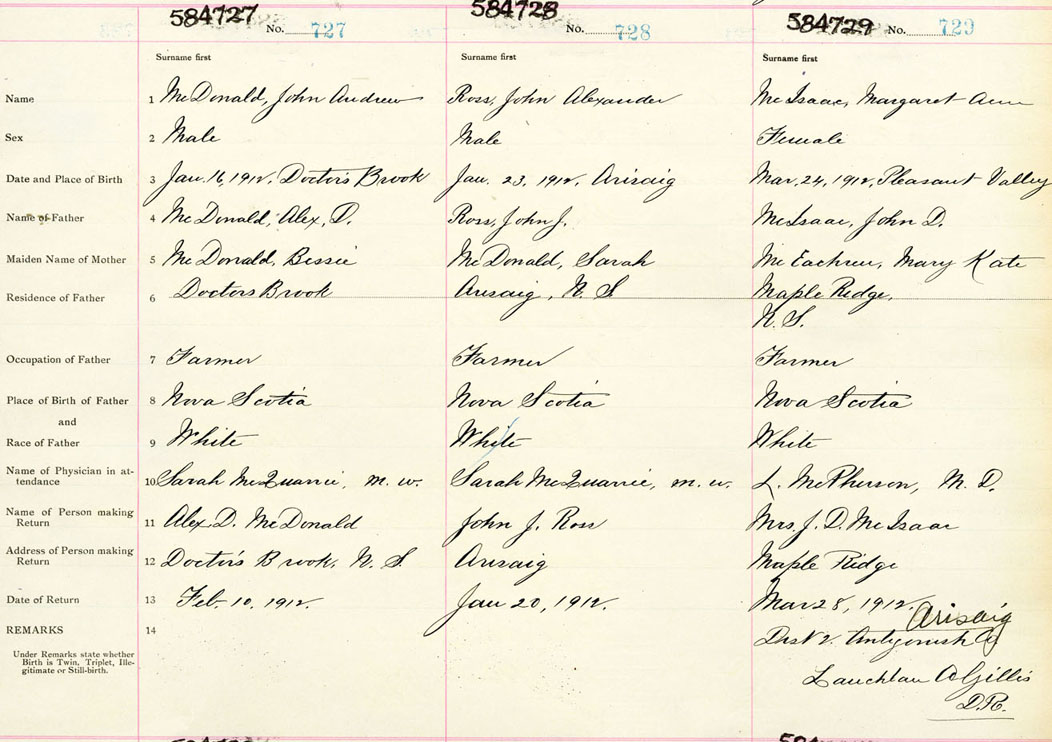 584727 No. 727
584728 No. 728
584729 No. 729
Surname first Surname first Surname first
Name 1 McDonald, John Andrew Ross, John Alexander McIsaac, Margaret Ann
Sex 2 Male Male Female
Date and Place of Birth 3 Jan. 16, 1912. Doctor's Brook Jan. 23. 1912. Arisaig Mar. 24, 1912, Pleasant Valley
Name of Father 4 McDonald, Alex. D. Ross, John J. McIsaac, John D.
Maiden Name of Mother 5 McDonald, Bessie McDonald, Sarah McEachren, Mary Kate
Residence of Father 6 Doctors Brook Arisaig, N. S. Maple Ridge,
N. S.
Occupation of Father 7 Farmer Farmer Farmer
Place of Birth of Father 8 Nova Scotia Nova Scotia Nova Scotia
and
Race of Father 9 White White White
Name of Physician in at-
tendance 10 Sarah McQuarrie, m. w. Sarah McQuarrie, m. w. L. McPherson, M. D.
Name of Person making
Return 11 Alex. D. McDonald John J. Ross Mrs. J. D. McIsaac
Address of Person making
Return 12 Doctor's Brook, N. S. Arisaig Maple Ridge
Date of Return 13 Feb. 10. 1912. Jan 20, 1912. Mar 28, 1912.
Arisaig
REMARKS 14 Dist 2. Antigonish Co
Under Remarks state whether
Birth is Twin, Triplet, Ille-
gitimate or Still-birth.
Lauchlan Gillis
D.R.